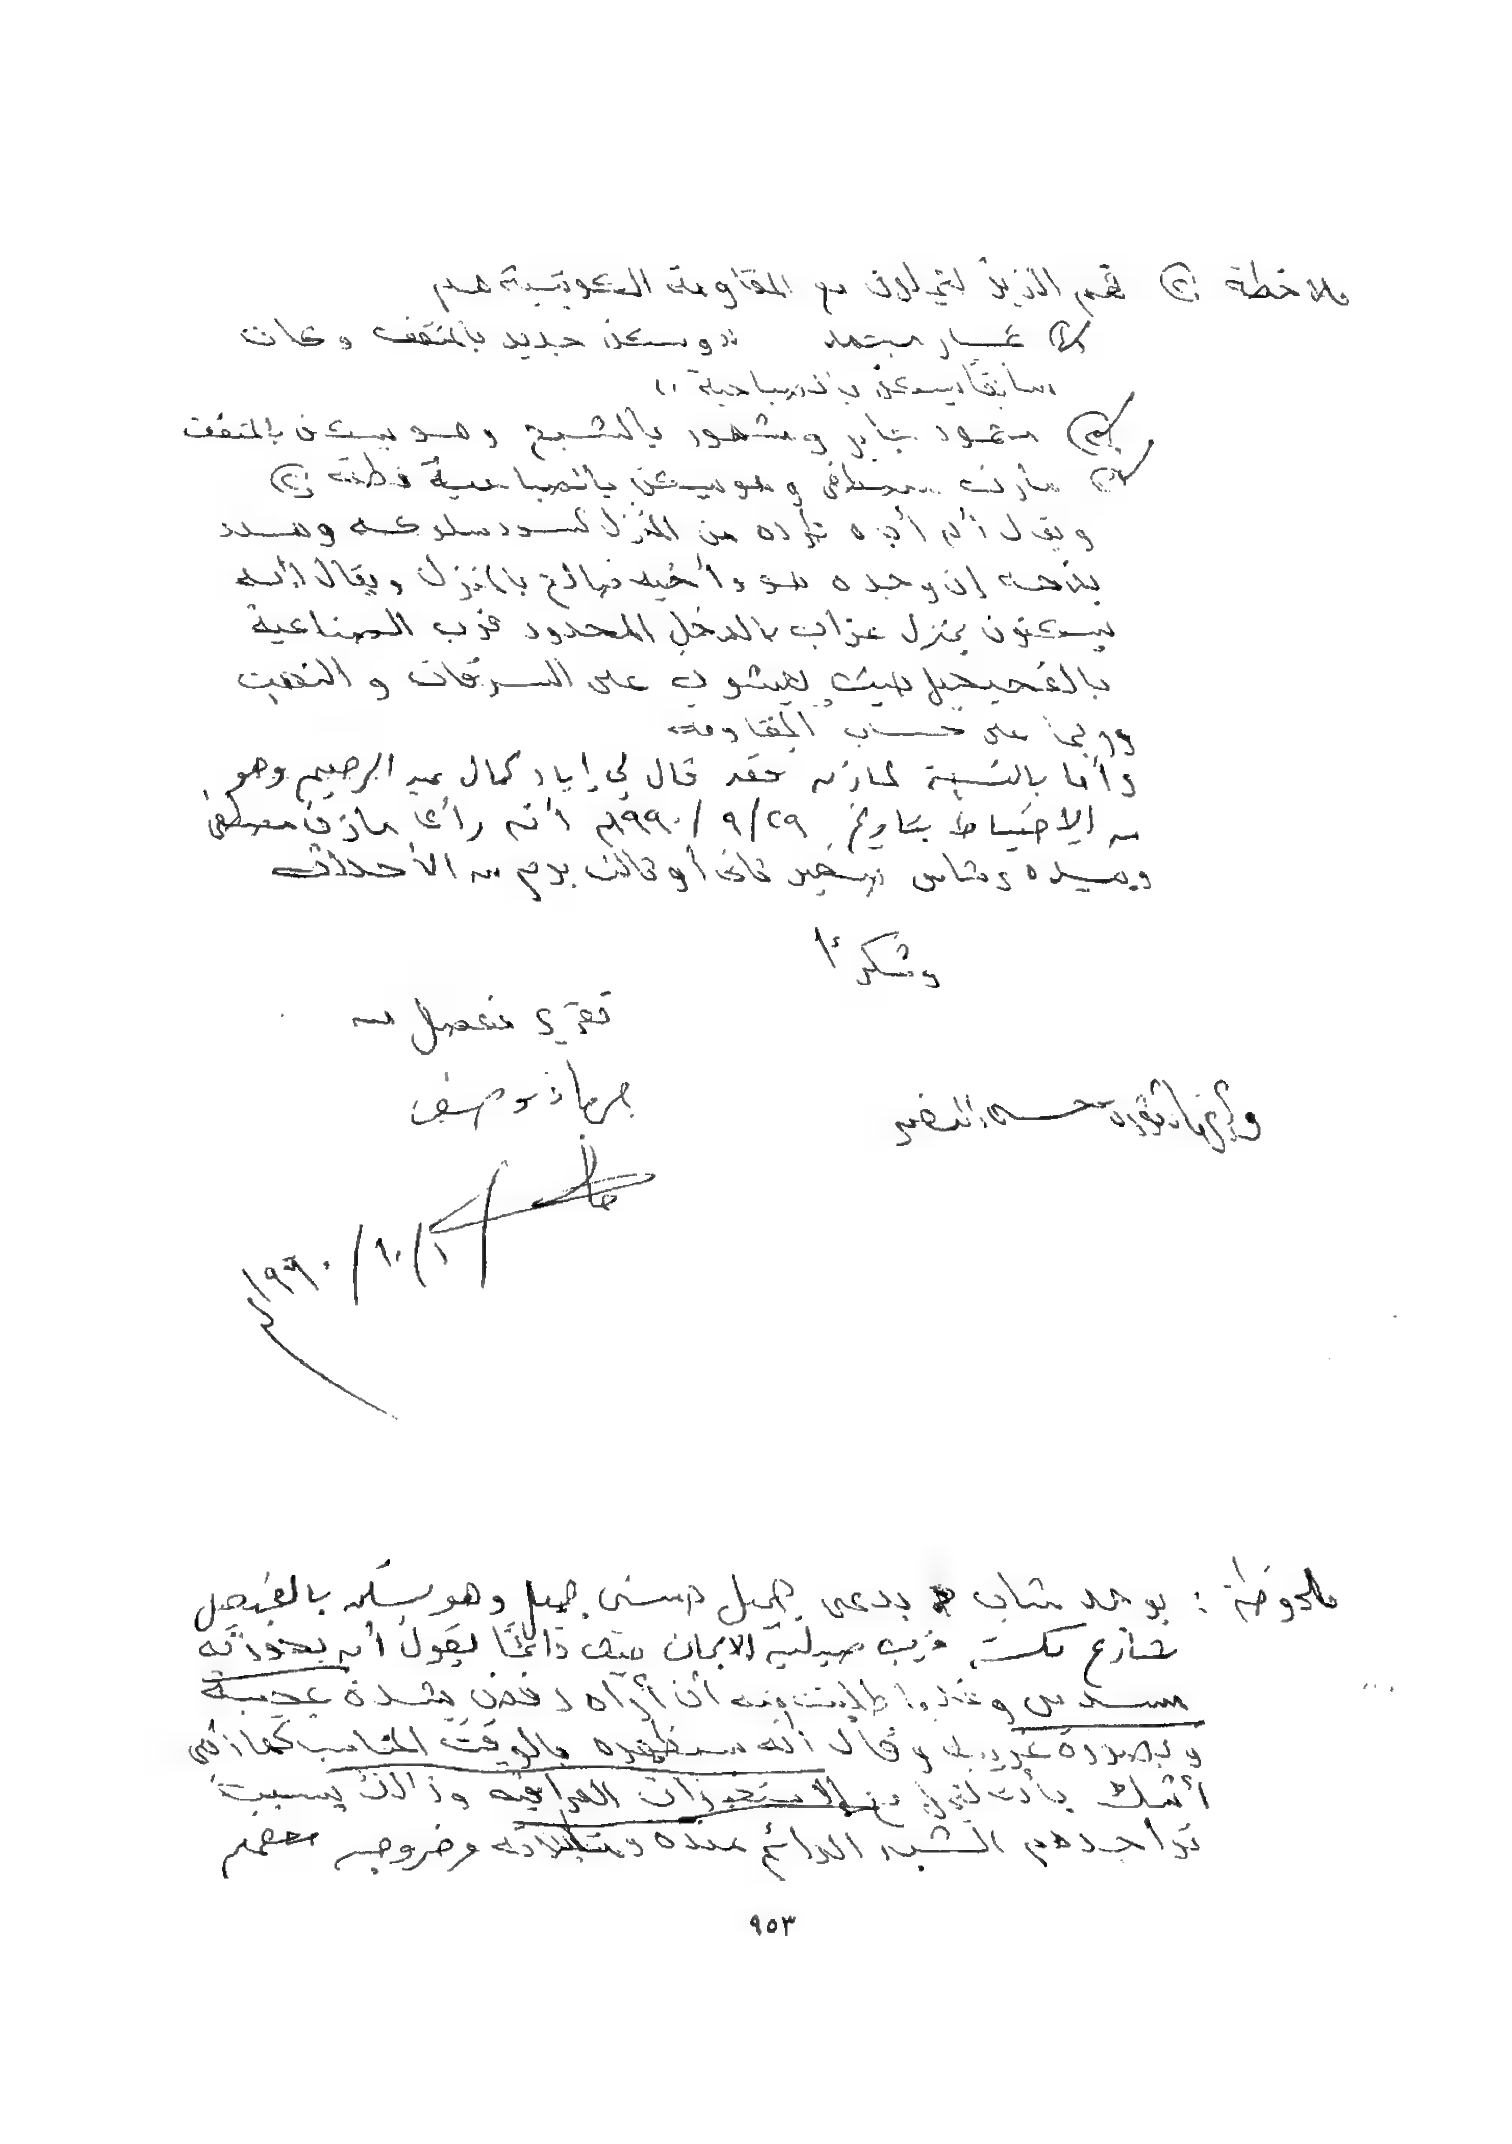 ملاحظة ٢) أهم الذين يعملون مع المقاومة الكويتية هم
١) عسار محمد " ويسكن جديد بالمنقف وكان
سابقاً يسكن بالصباحية "
٢) محمود جابر ومشهور بالشيخ وهو يسكن بالمنقف
٣) مازن مصطفى وهو يسكن بالصباحية قطعة ٢)
ويقال أن أباه طرده من المنزل لسوء سلوكه وهدد
بذبحه إن وجده هو وأخيه صالح بالمنزل ويقال أنه
يسكنون بمنزل عزاب بالدخل المحدود قرب الصناعية
بالفحيحيل حيث يعيشون على السرقات و النهب
وربما على حساب المقاومة
وأما بالنسبة لمازن فقد قال لي إياد كمال عبد الرحيم وهو
من الاحتياط بتاريخ ٢٩/٩/١٩٩٠م أنه رأى مازن مصطفى
وبيده رشاش صغير ثاني أو ثالث يوم من الأحداث
وشكراً
تقرير مفصل من
جهاد يوسف
١/١٠/١٩٩٠
ملحوظة : يوجد شاب يدعى جميل حسني جميل وهو يسكن بالفحيحيل
شارع مكة قرب صيدلية الايمان حيث دائماً يقول أنه بحوزته
مسدس وعندما طلبت منه أن أراه رفض بشدة عجيبة
وبصورة غريبة وقال أنه سيظهره بالوقت المناسب كما أنني
أشك بأنه يعمل مع الاستخبارات العراقية وذلك بسبب
تواجدهم الشبه الدائم عنده وخروجه معهم
٩٥٣